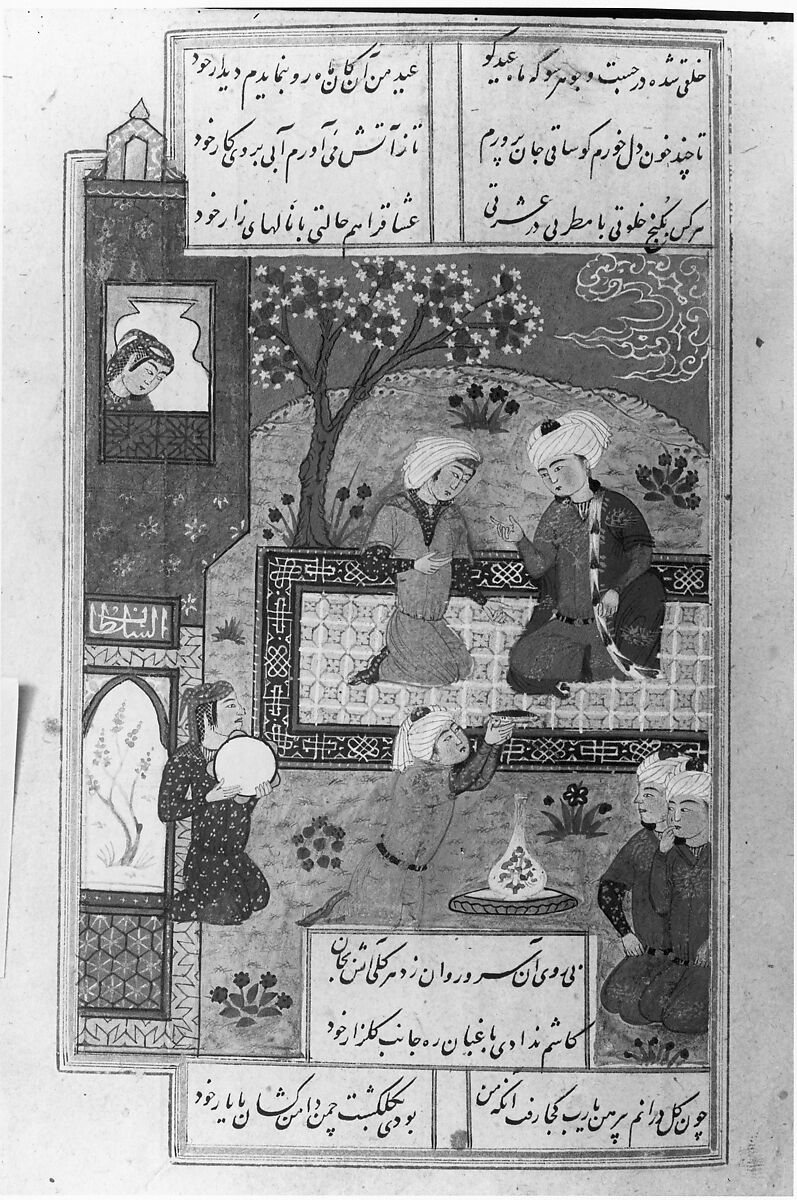 خلقی شده در جست و جو هر سو که ماه عید کو
عید من آن کان ماه رو بنمایدم دیدار خود
تا چند خون دل خورم کو ساقی جان پرورم
تا ز آتش می آورم آبی بروی کار خود
هر کس بکنج خلوتی با مطربی در عشرتی
عشاقرا هم حالتی با نالهای زار خود
السلطان
بی روی آن سرو روان زد هر گلی آتش بجان
کاشم ندادی باغبان ره جانب گلزار خود
چون گل درانم پیرهن یارب کجا رفت آنکه من
بودی بگلگشت چمن دامن کشان با یار خود